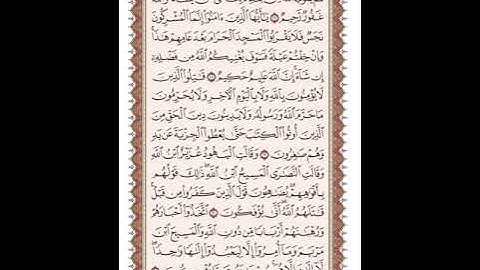 غَفُورٌ رَّحِيمٌ ۝ يَٰٓأَيُّهَا ٱلَّذِينَ ءَامَنُوٓا۟ إِنَّمَا ٱلْمُشْرِكُونَ
نَجَسٌ فَلَا يَقْرَبُوا۟ ٱلْمَسْجِدَ ٱلْحَرَامَ بَعْدَ عَامِهِمْ هَٰذَا ۚ
وَإِنْ خِفْتُمْ عَيْلَةً فَسَوْفَ يُغْنِيكُمُ ٱللَّهُ مِن فَضْلِهِۦٓ
إِن شَآءَ ۚ إِنَّ ٱللَّهَ عَلِيمٌ حَكِيمٌ ۝ قَٰتِلُوا۟ ٱلَّذِينَ
لَا يُؤْمِنُونَ بِٱللَّهِ وَلَا بِٱلْيَوْمِ ٱلْءَاخِرِ وَلَا يُحَرِّمُونَ
مَا حَرَّمَ ٱللَّهُ وَرَسُولُهُۥ وَلَا يَدِينُونَ دِينَ ٱلْحَقِّ مِنَ
ٱلَّذِينَ أُوتُوا۟ ٱلْكِتَٰبَ حَتَّىٰ يُعْطُوا۟ ٱلْجِزْيَةَ عَن يَدٍ
وَهُمْ صَٰغِرُونَ ۝ وَقَالَتِ ٱلْيَهُودُ عُزَيْرٌ ٱبْنُ ٱللَّهِ
وَقَالَتِ ٱلنَّصَٰرَى ٱلْمَسِيحُ ٱبْنُ ٱللَّهِ ۖ ذَٰلِكَ قَوْلُهُم
بِأَفْوَٰهِهِمْ ۖ يُضَٰهِـُٔونَ قَوْلَ ٱلَّذِينَ كَفَرُوا۟ مِن قَبْلُ ۚ
قَٰتَلَهُمُ ٱللَّهُ ۚ أَنَّىٰ يُؤْفَكُونَ ۝ ٱتَّخَذُوٓا۟ أَحْبَارَهُمْ
وَرُهْبَٰنَهُمْ أَرْبَابًا مِّن دُونِ ٱللَّهِ وَٱلْمَسِيحَ ٱبْنَ
مَرْيَمَ وَمَآ أُمِرُوٓا۟ إِلَّا لِيَعْبُدُوٓا۟ إِلَٰهًا وَٰحِدًا ۖ